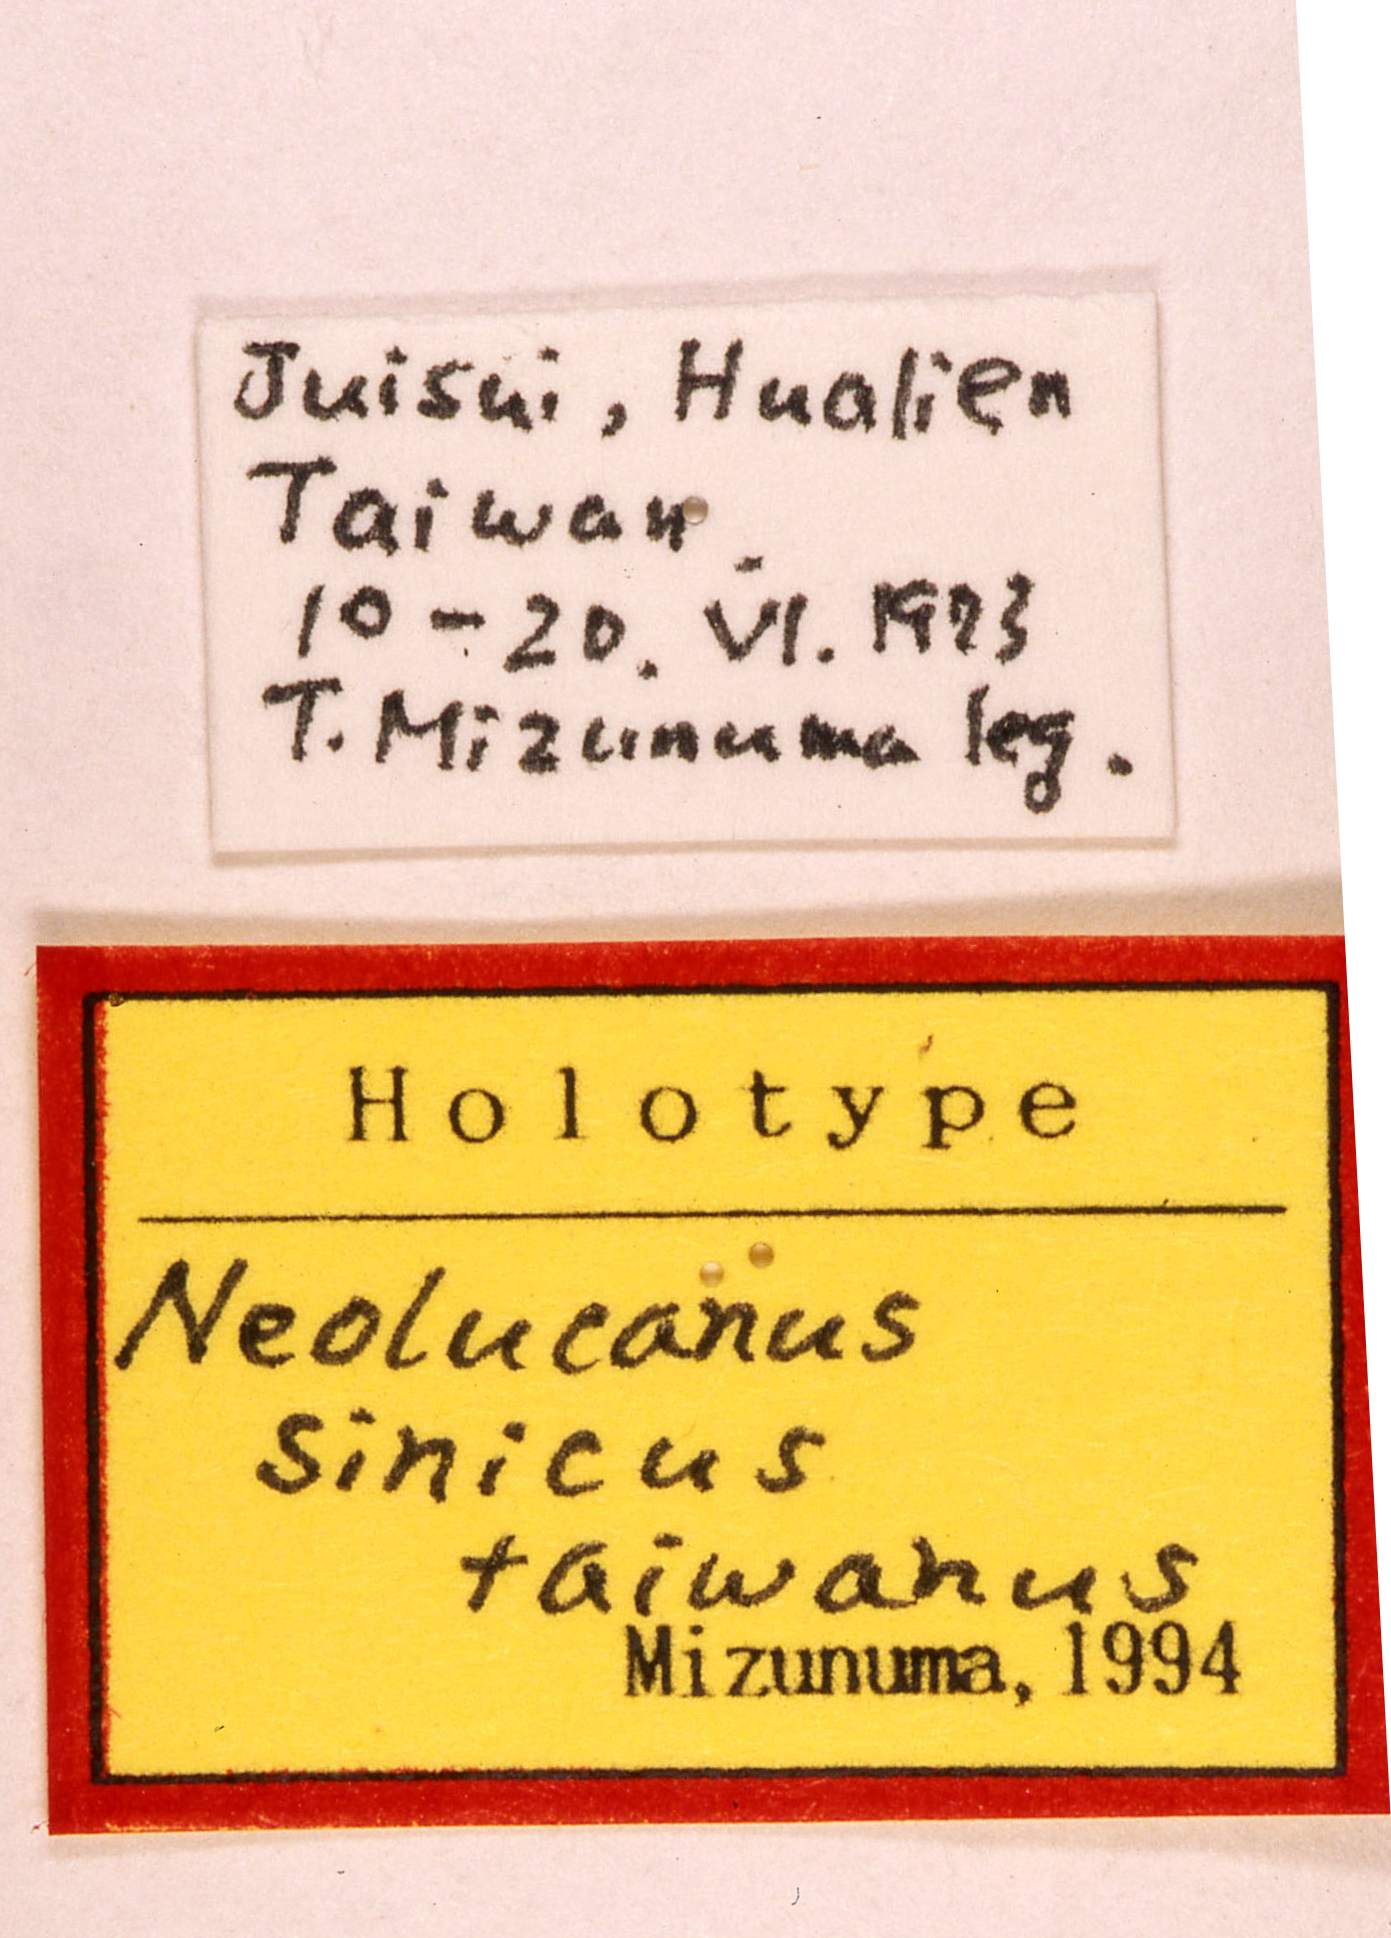 Juisui, Hualien
Taiwan.
10-20. VI. 1973
T. Mizunuma leg.
Holotype
Neolucanus
sinicus
taiwanus
Mizunuma, 1994